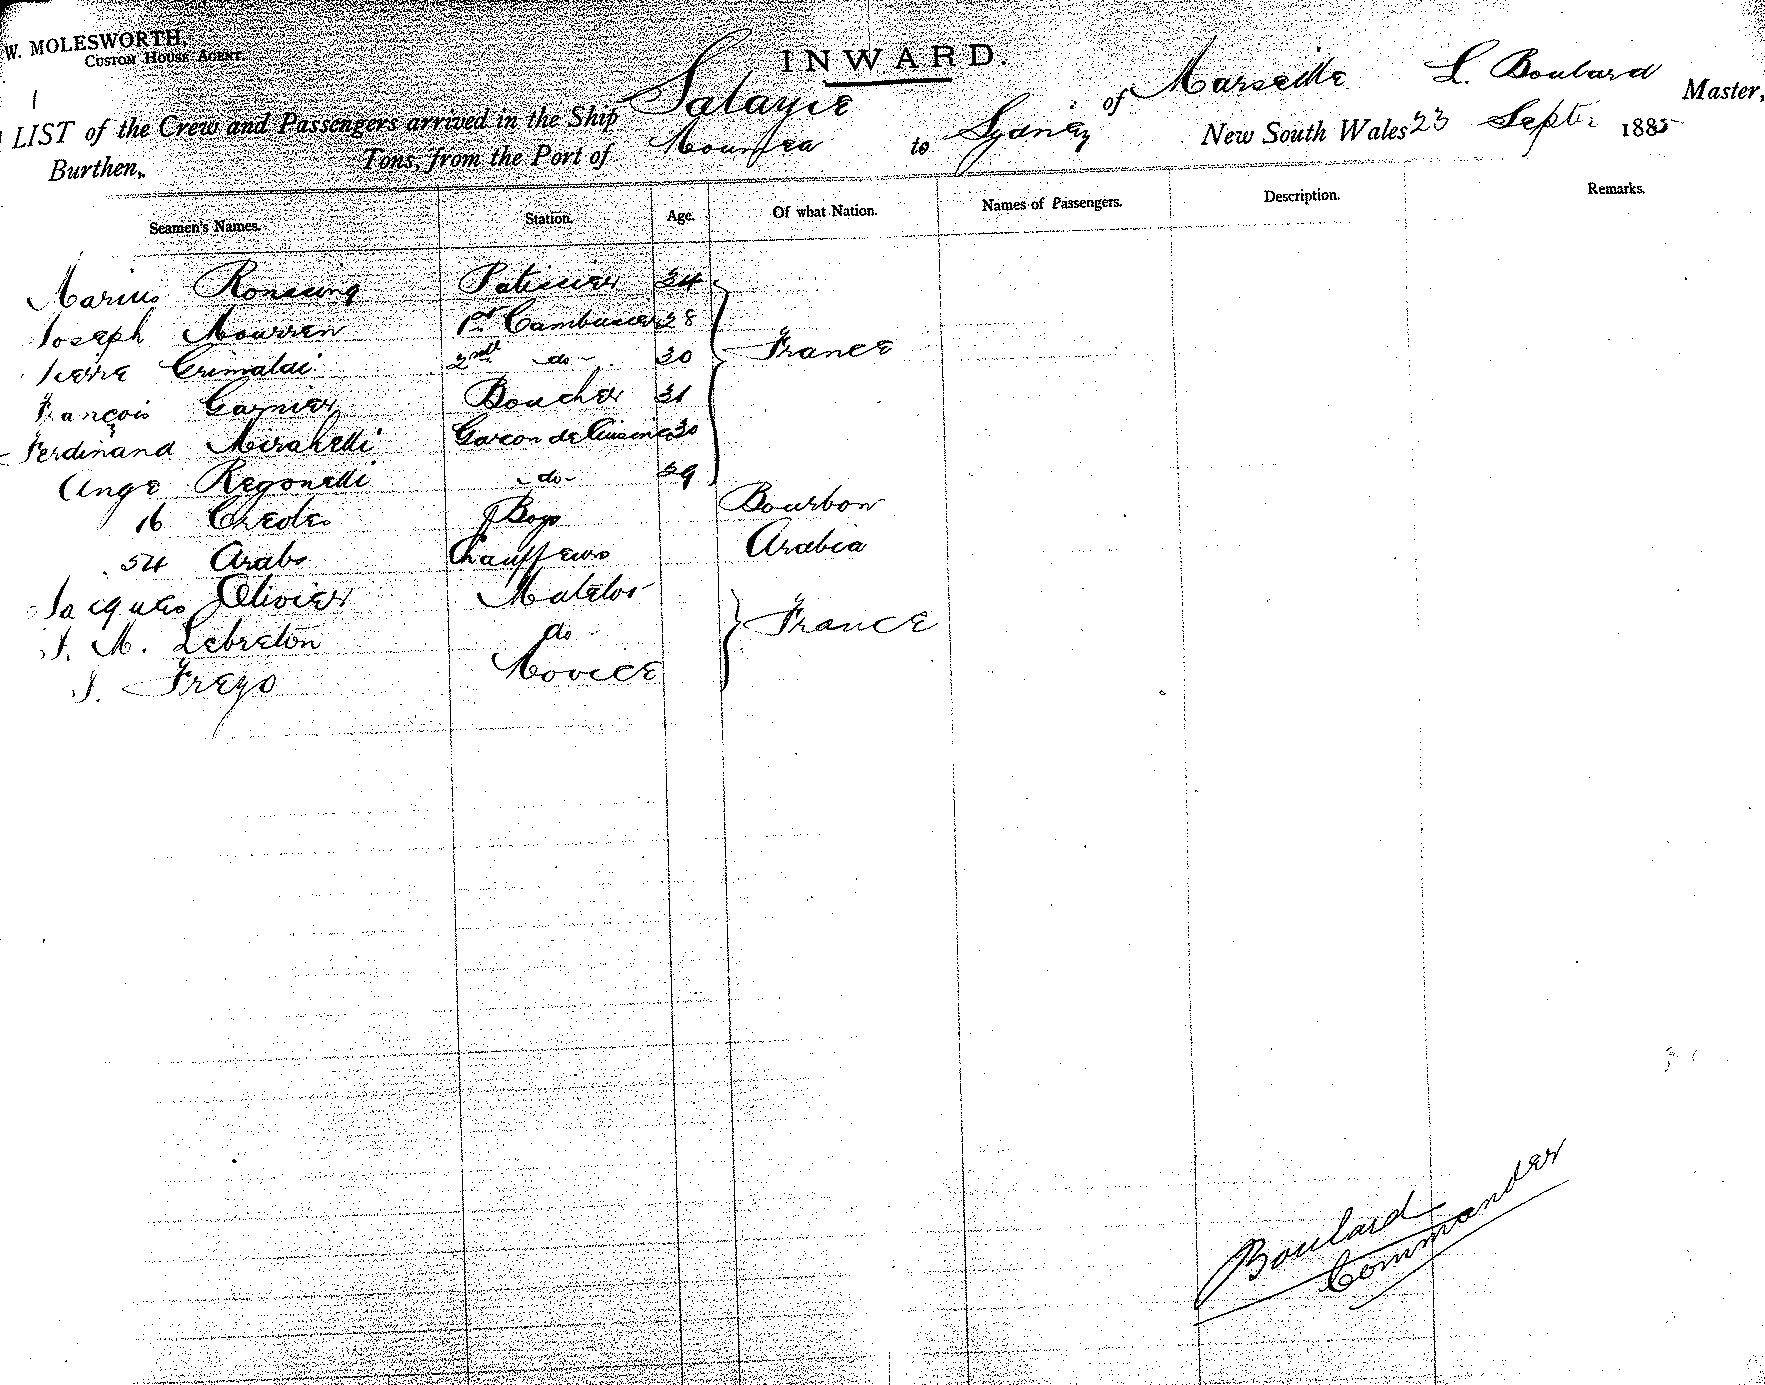 W. MOLESWORTH,
CUSTOM HOUSE AGENT.
INWARD.
LIST of the Crew and Passengers arrived in the Ship Salazie of Marseille L. Boulard Master,
Burthen, Tons, from the Port of Noumea to Sydney New South Wales 23 Septr 1885
Seamen's Names. Station. Age. Of what Nation. Names of Passengers. Description. Remarks.
Marius Patissier 24
Joseph Mourren 1er Cambusier 28
Pierre Grimaldi 2nd -do- 30 France
François Garnier Boucher 31
Ferdinand Mirabelli Garcon de Cuisine 30
Ange Regonelli -do- 29
16 Creoles Boys Bourbon
54 Arabs Chauffeurs Arabia
Jacques Olivier Matelot
J. M. Lebreton do France
J. Frezo Novice
Boulard
Commander